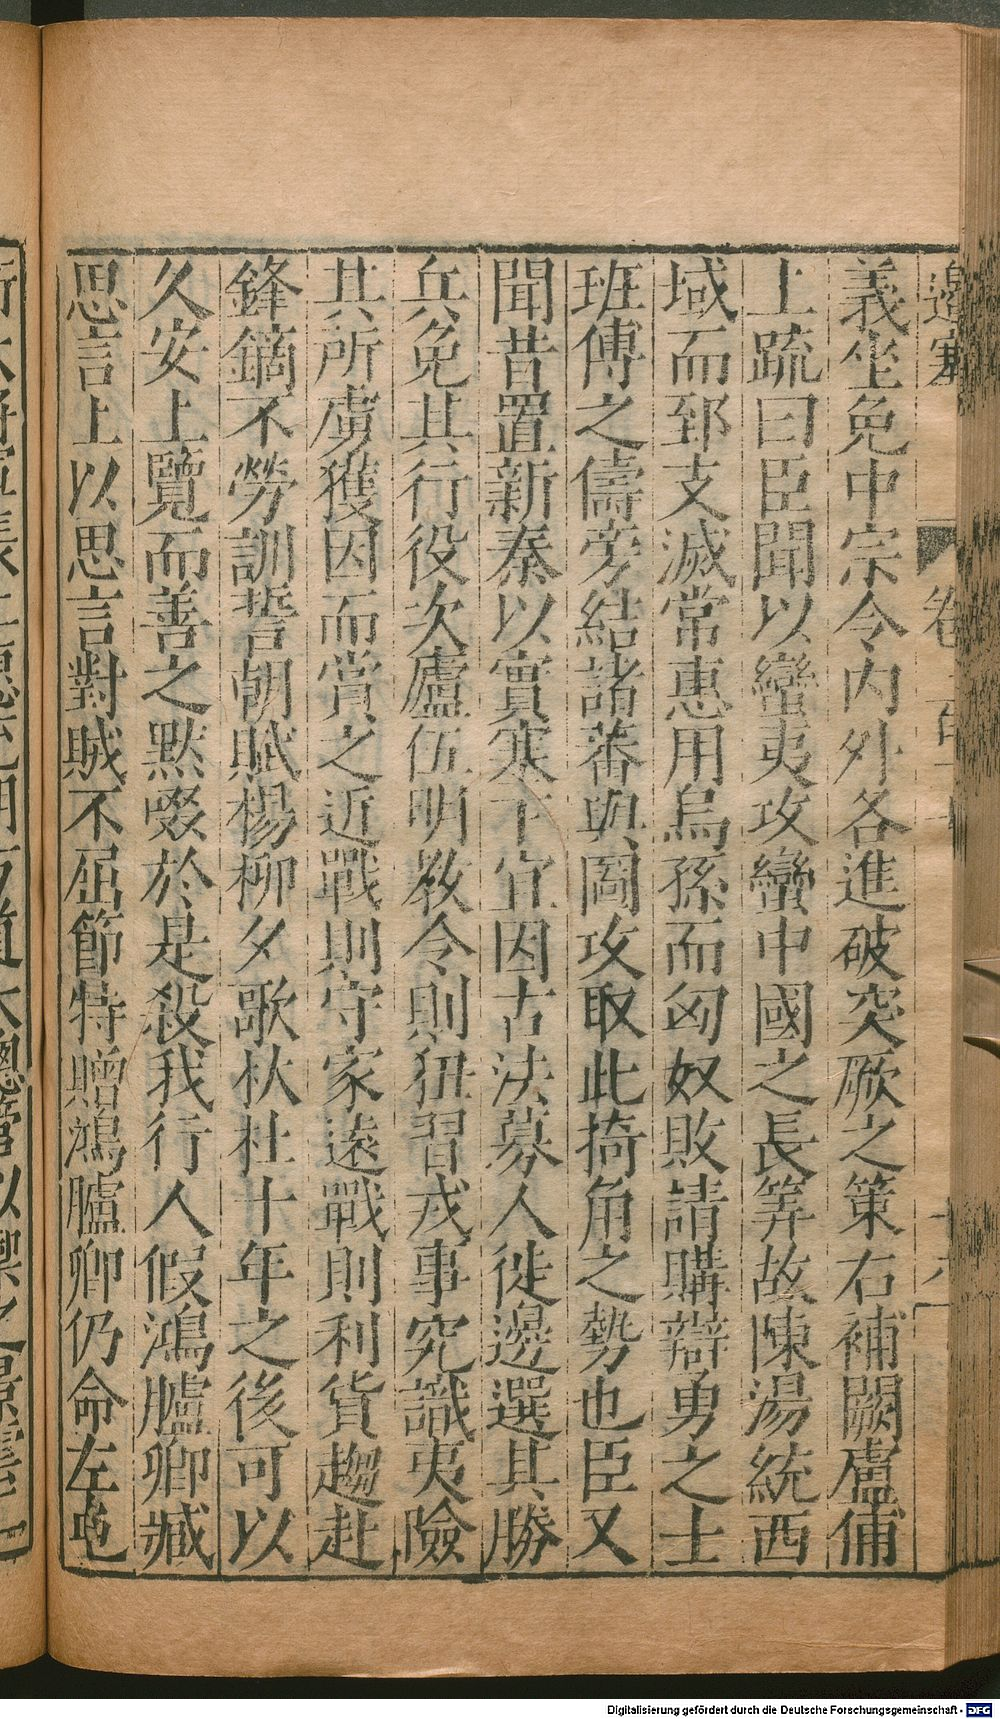 邊塞
卷
義坐免中宗令內外各進破突厥之策右補闕盧俌
上疏曰臣聞以蠻夷攻蠻中國之長筭故陳湯統西
域而郅支滅常惠用烏孫而匈奴敗請購辯勇之士
班傅之儔旁結諸蕃與圖攻取此掎角之勢也臣又
聞昔置新秦以實塞下宜因古法募人徙邊選其勝
兵免其行役次廬伍明教令則狃習戎事究識夷險
其所虜獲因而賞之近戰則守家遠戰則利貨趨赴
鋒鏑不勞訓誓朝賦楊柳夕歌杕杜十年之後可以
久安上覽而善之默啜於是殺我行人假鴻臚卿臧
思言上以思言對賊不屈節特贈鴻臚卿仍命左屯
Digitalisierung gefördert durch die Deutsche Forschungsgemeinschaft - DFG